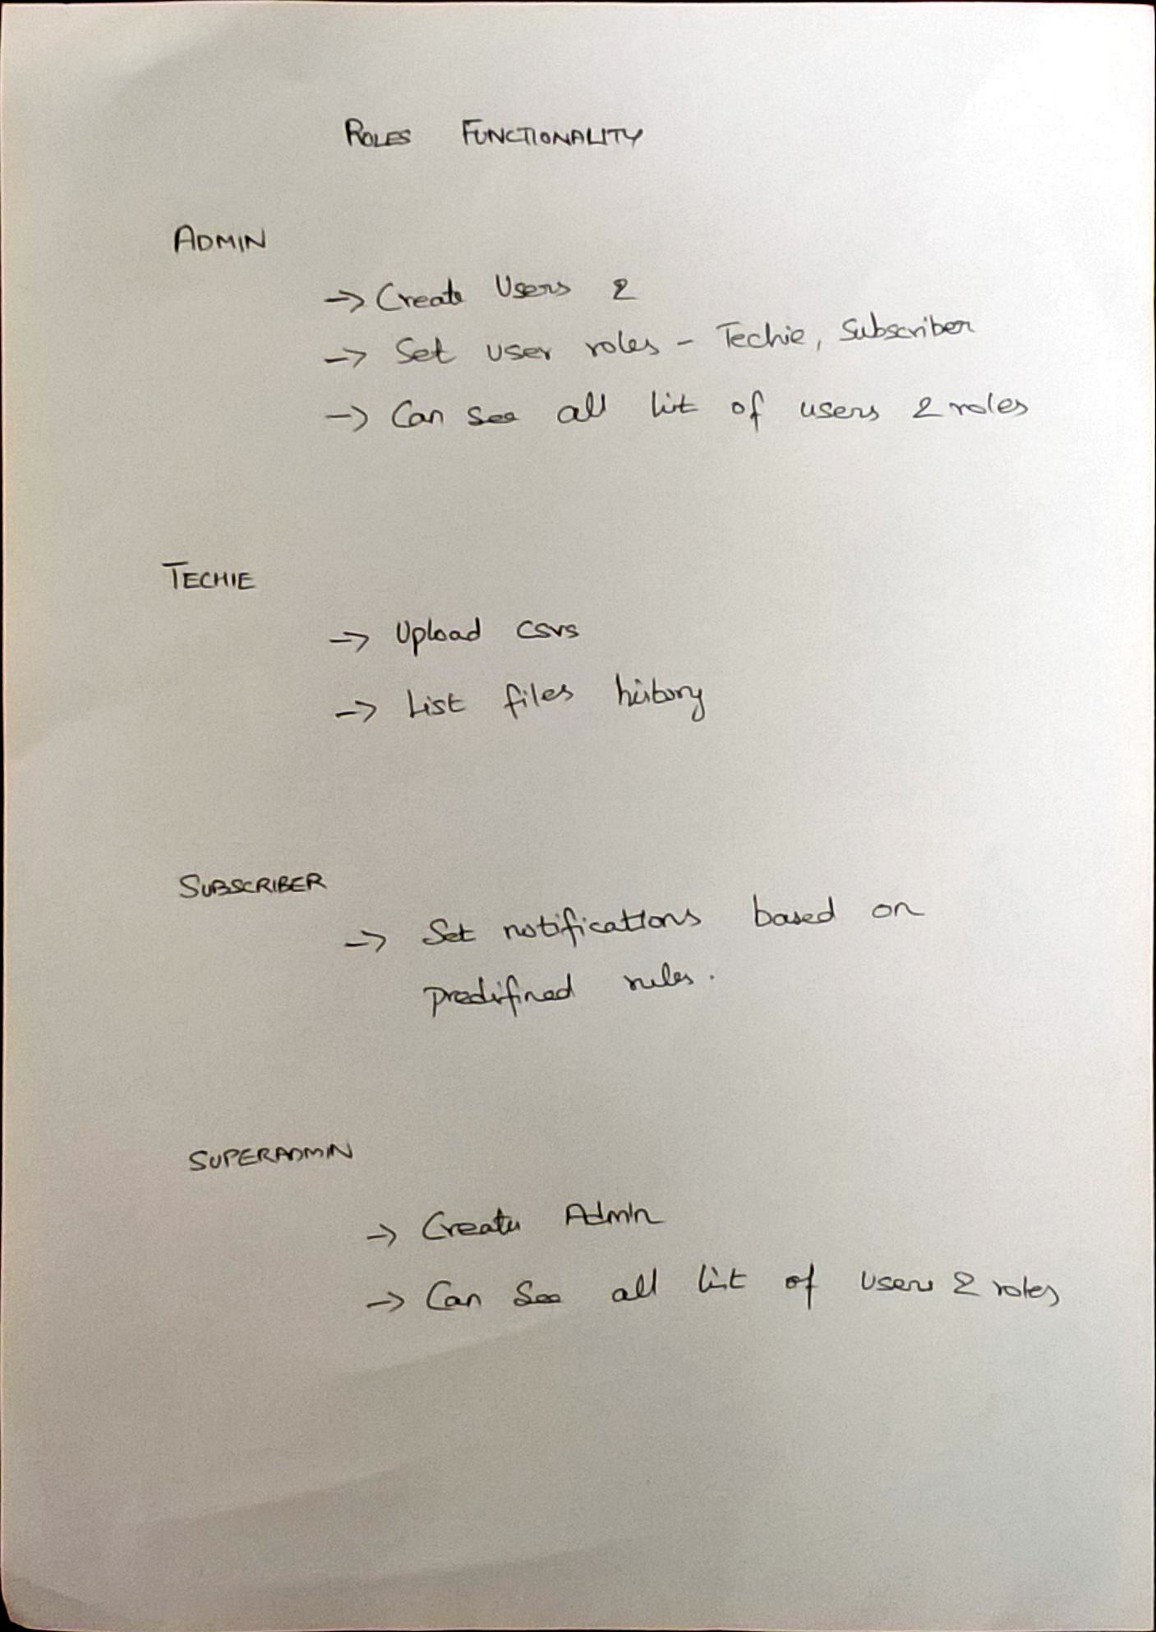 ROLES FUNCTIONALITY
ADMIN
→ Create Users &
→ Set user roles - Techie, Subscriber
→ Can see all list of users & roles
TECHIE
→ Upload CSVs
→ List files history
SUBSCRIBER
→ Set notifications based on
predifined rules.
SUPERADMIN
→ Create Admin
→ Can See all list of users & roles